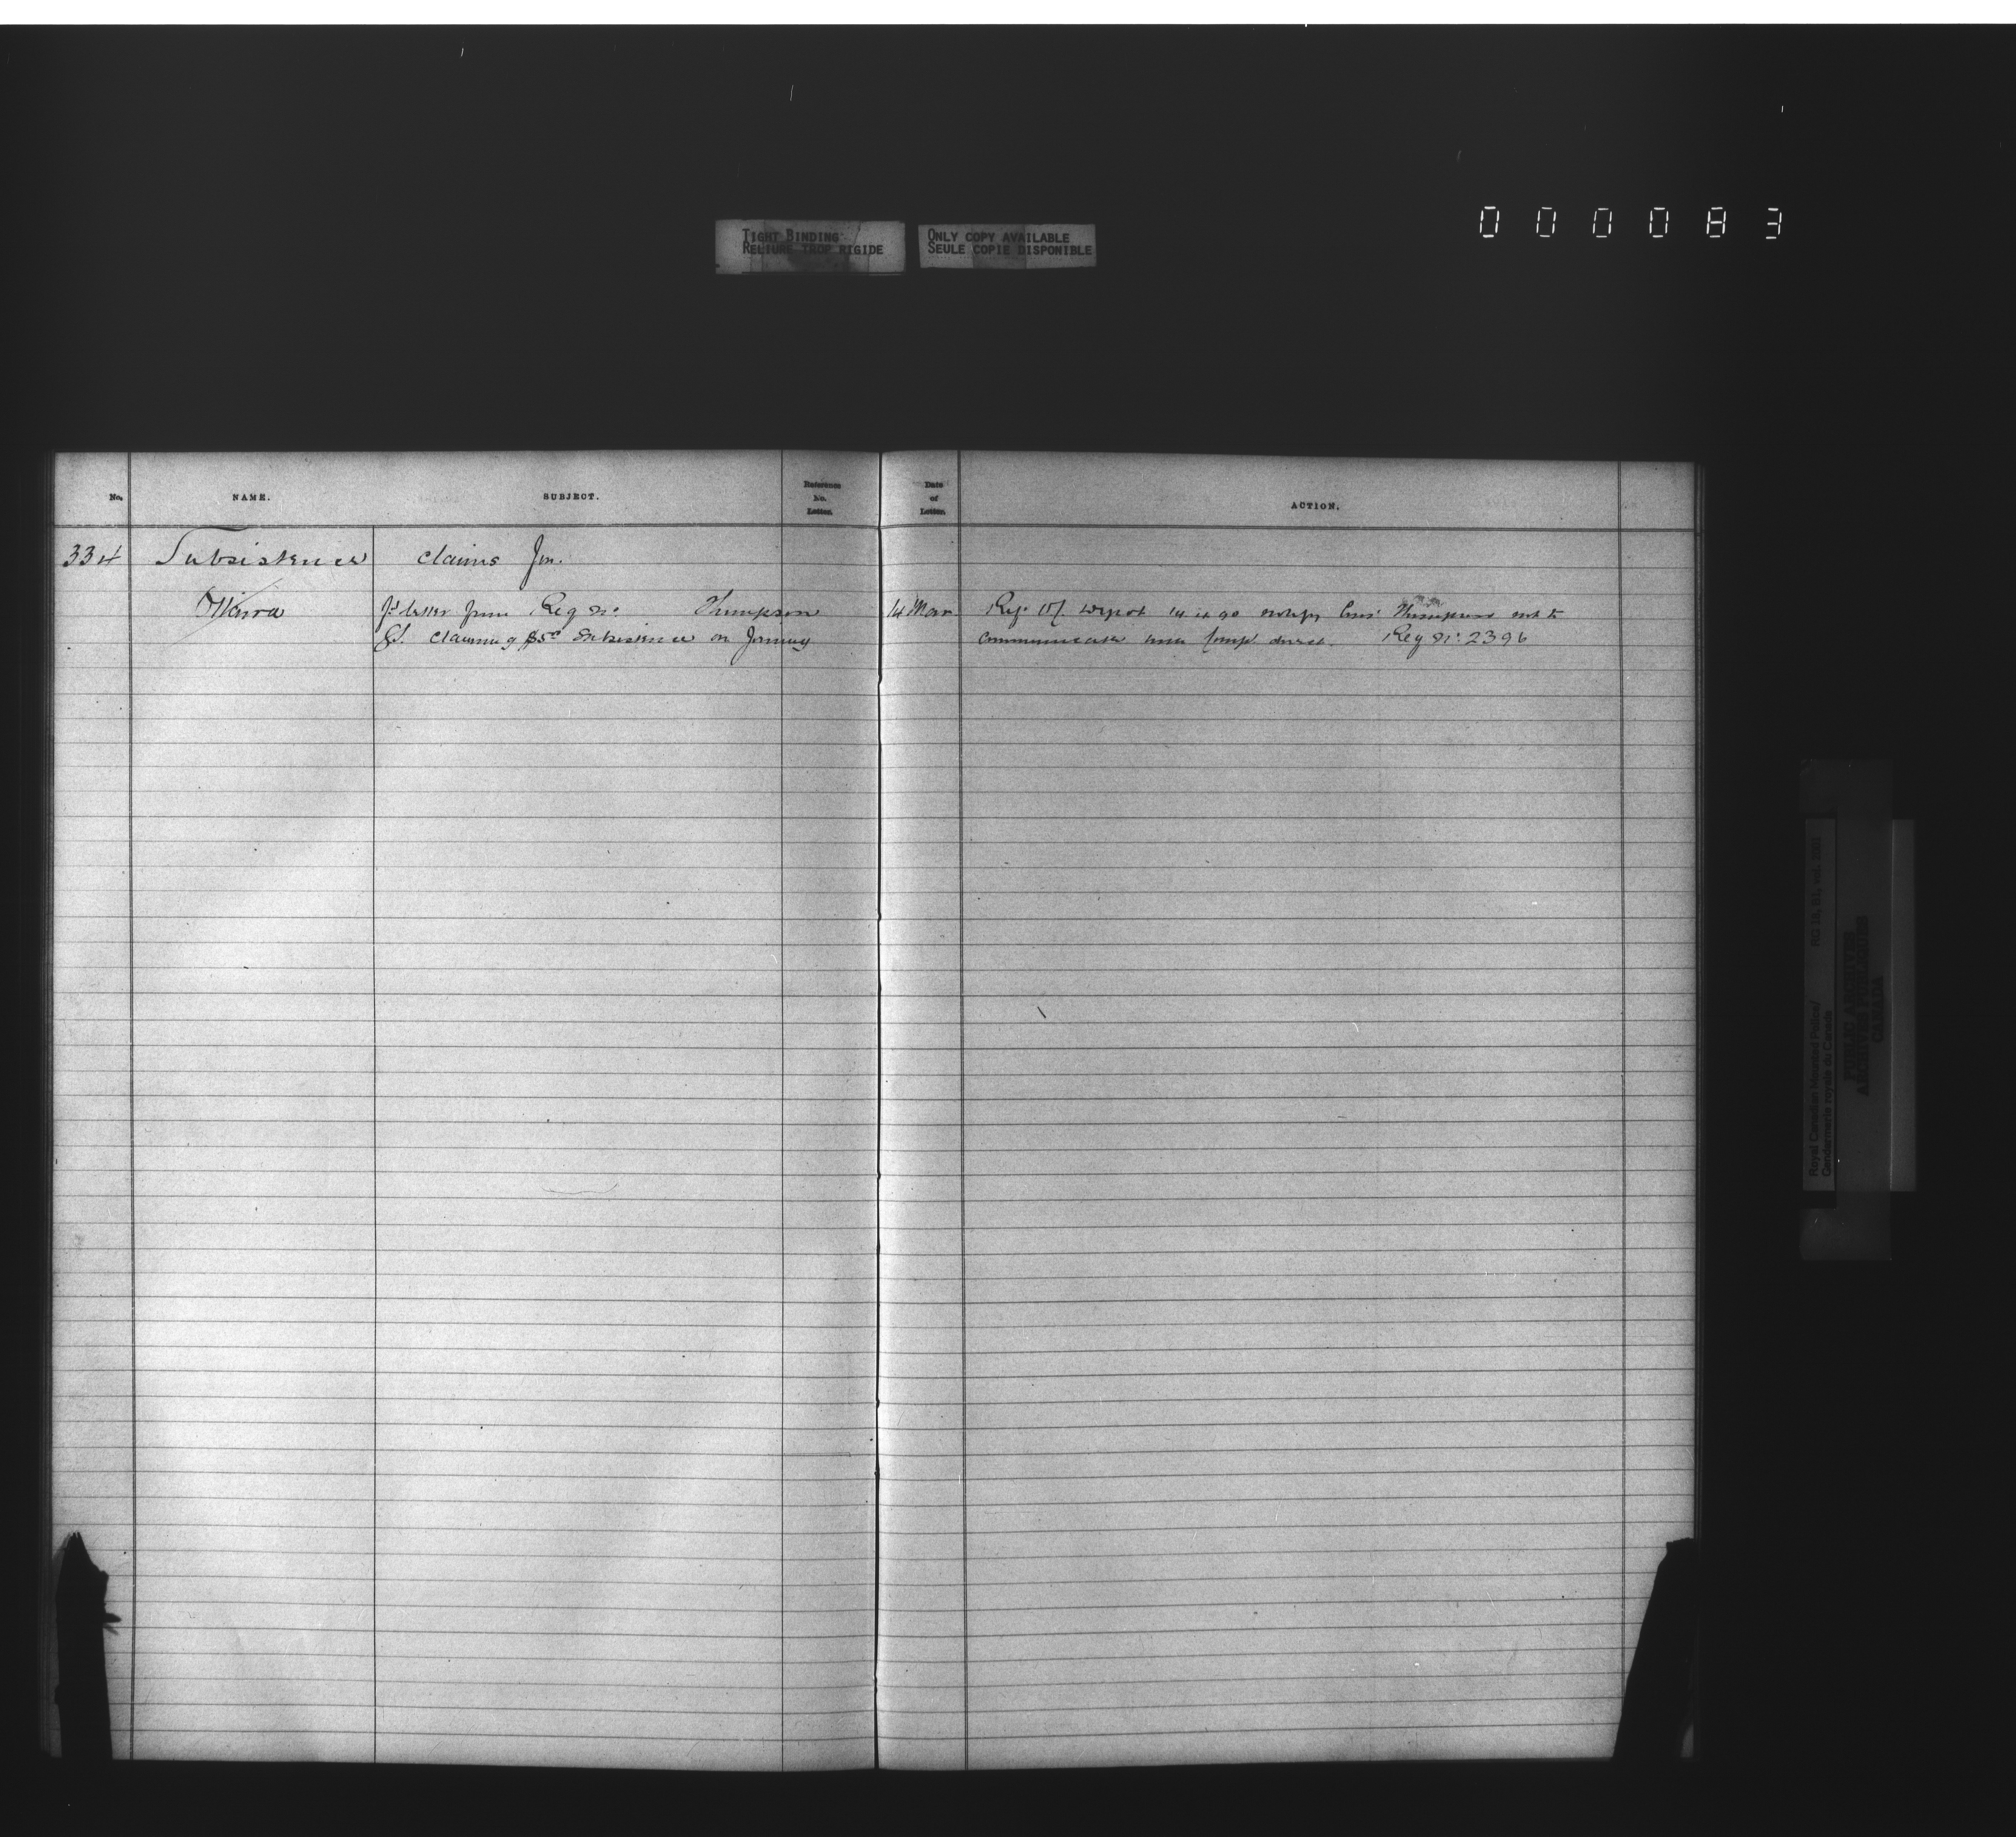 000083
TIGHT BINDING
RELIURE TROP RIGIDE
ONLY COPY AVAILABLE
SEULE COPIE DISPONIBLE
No.
NAME.
SUBJECT.
Reference
No.
Letter.
Date
of
Letter.
ACTION.
334 Subsistence claims for.
Ottawa
letter from Reg No. Thompson
claiming subsistence on
14 Mar.
Depot 14 Thompson not to
communicate with direct. Reg No. 2396
Royal Canadian Mounted Police/
Gendarmerie royale du Canada
RG 18, B1, vol.
PUBLIC ARCHIVES
ARCHIVES PUBLIQUES
CANADA